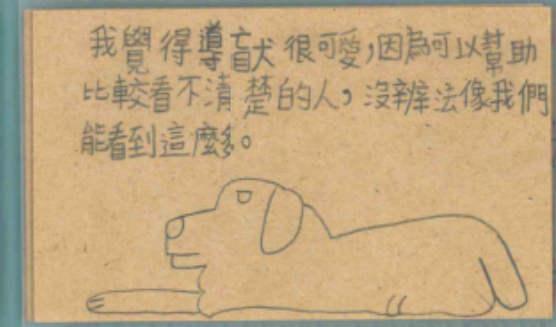 我覺得導盲犬很可愛,因為可以幫助
比較看不清楚的人,沒辦法像我們
能看到這麼多。